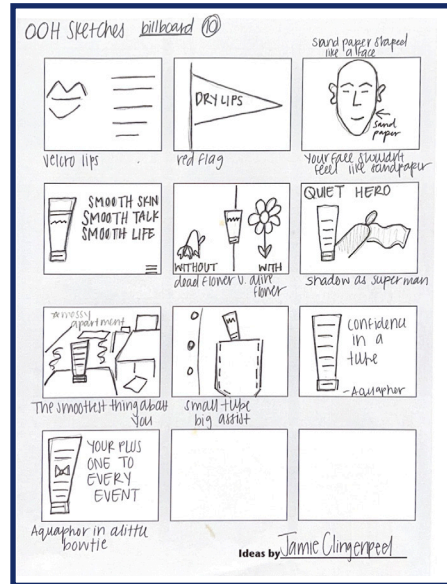 OOH Sketches billboard 10
sand paper shaped
like a face
DRY LIPS
sand
paper
velcro lips
red flag
your face shouldn't
feel like sandpaper
SMOOTH SKIN
SMOOTH TALK
SMOOTH LIFE
WITHOUT
WITH
dead flower v. alive
flower
QUIET HERO
shadow as super man
*messy
apartment
The smoothest thing about
you
small tube
big assist
confidence
in a
tube
-Aquapher
YOUR PLUS
ONE TO
EVERY
EVENT
Aquaphor in a little
bowtie
Ideas by Jamie Clingenpeel